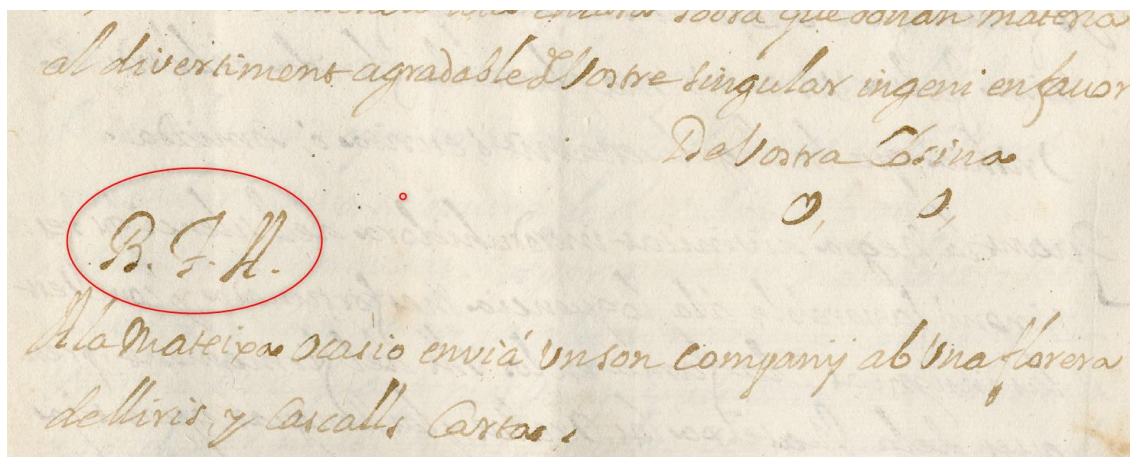 sobra que donan materia
al divertiment agradable d Vostre singular ingeni en favor
De Vostra Cosina
O, O,
B. F. A.
A la Mateixa ocasio enviá un son company ab una florera
de lliris y Cascalls Carta.